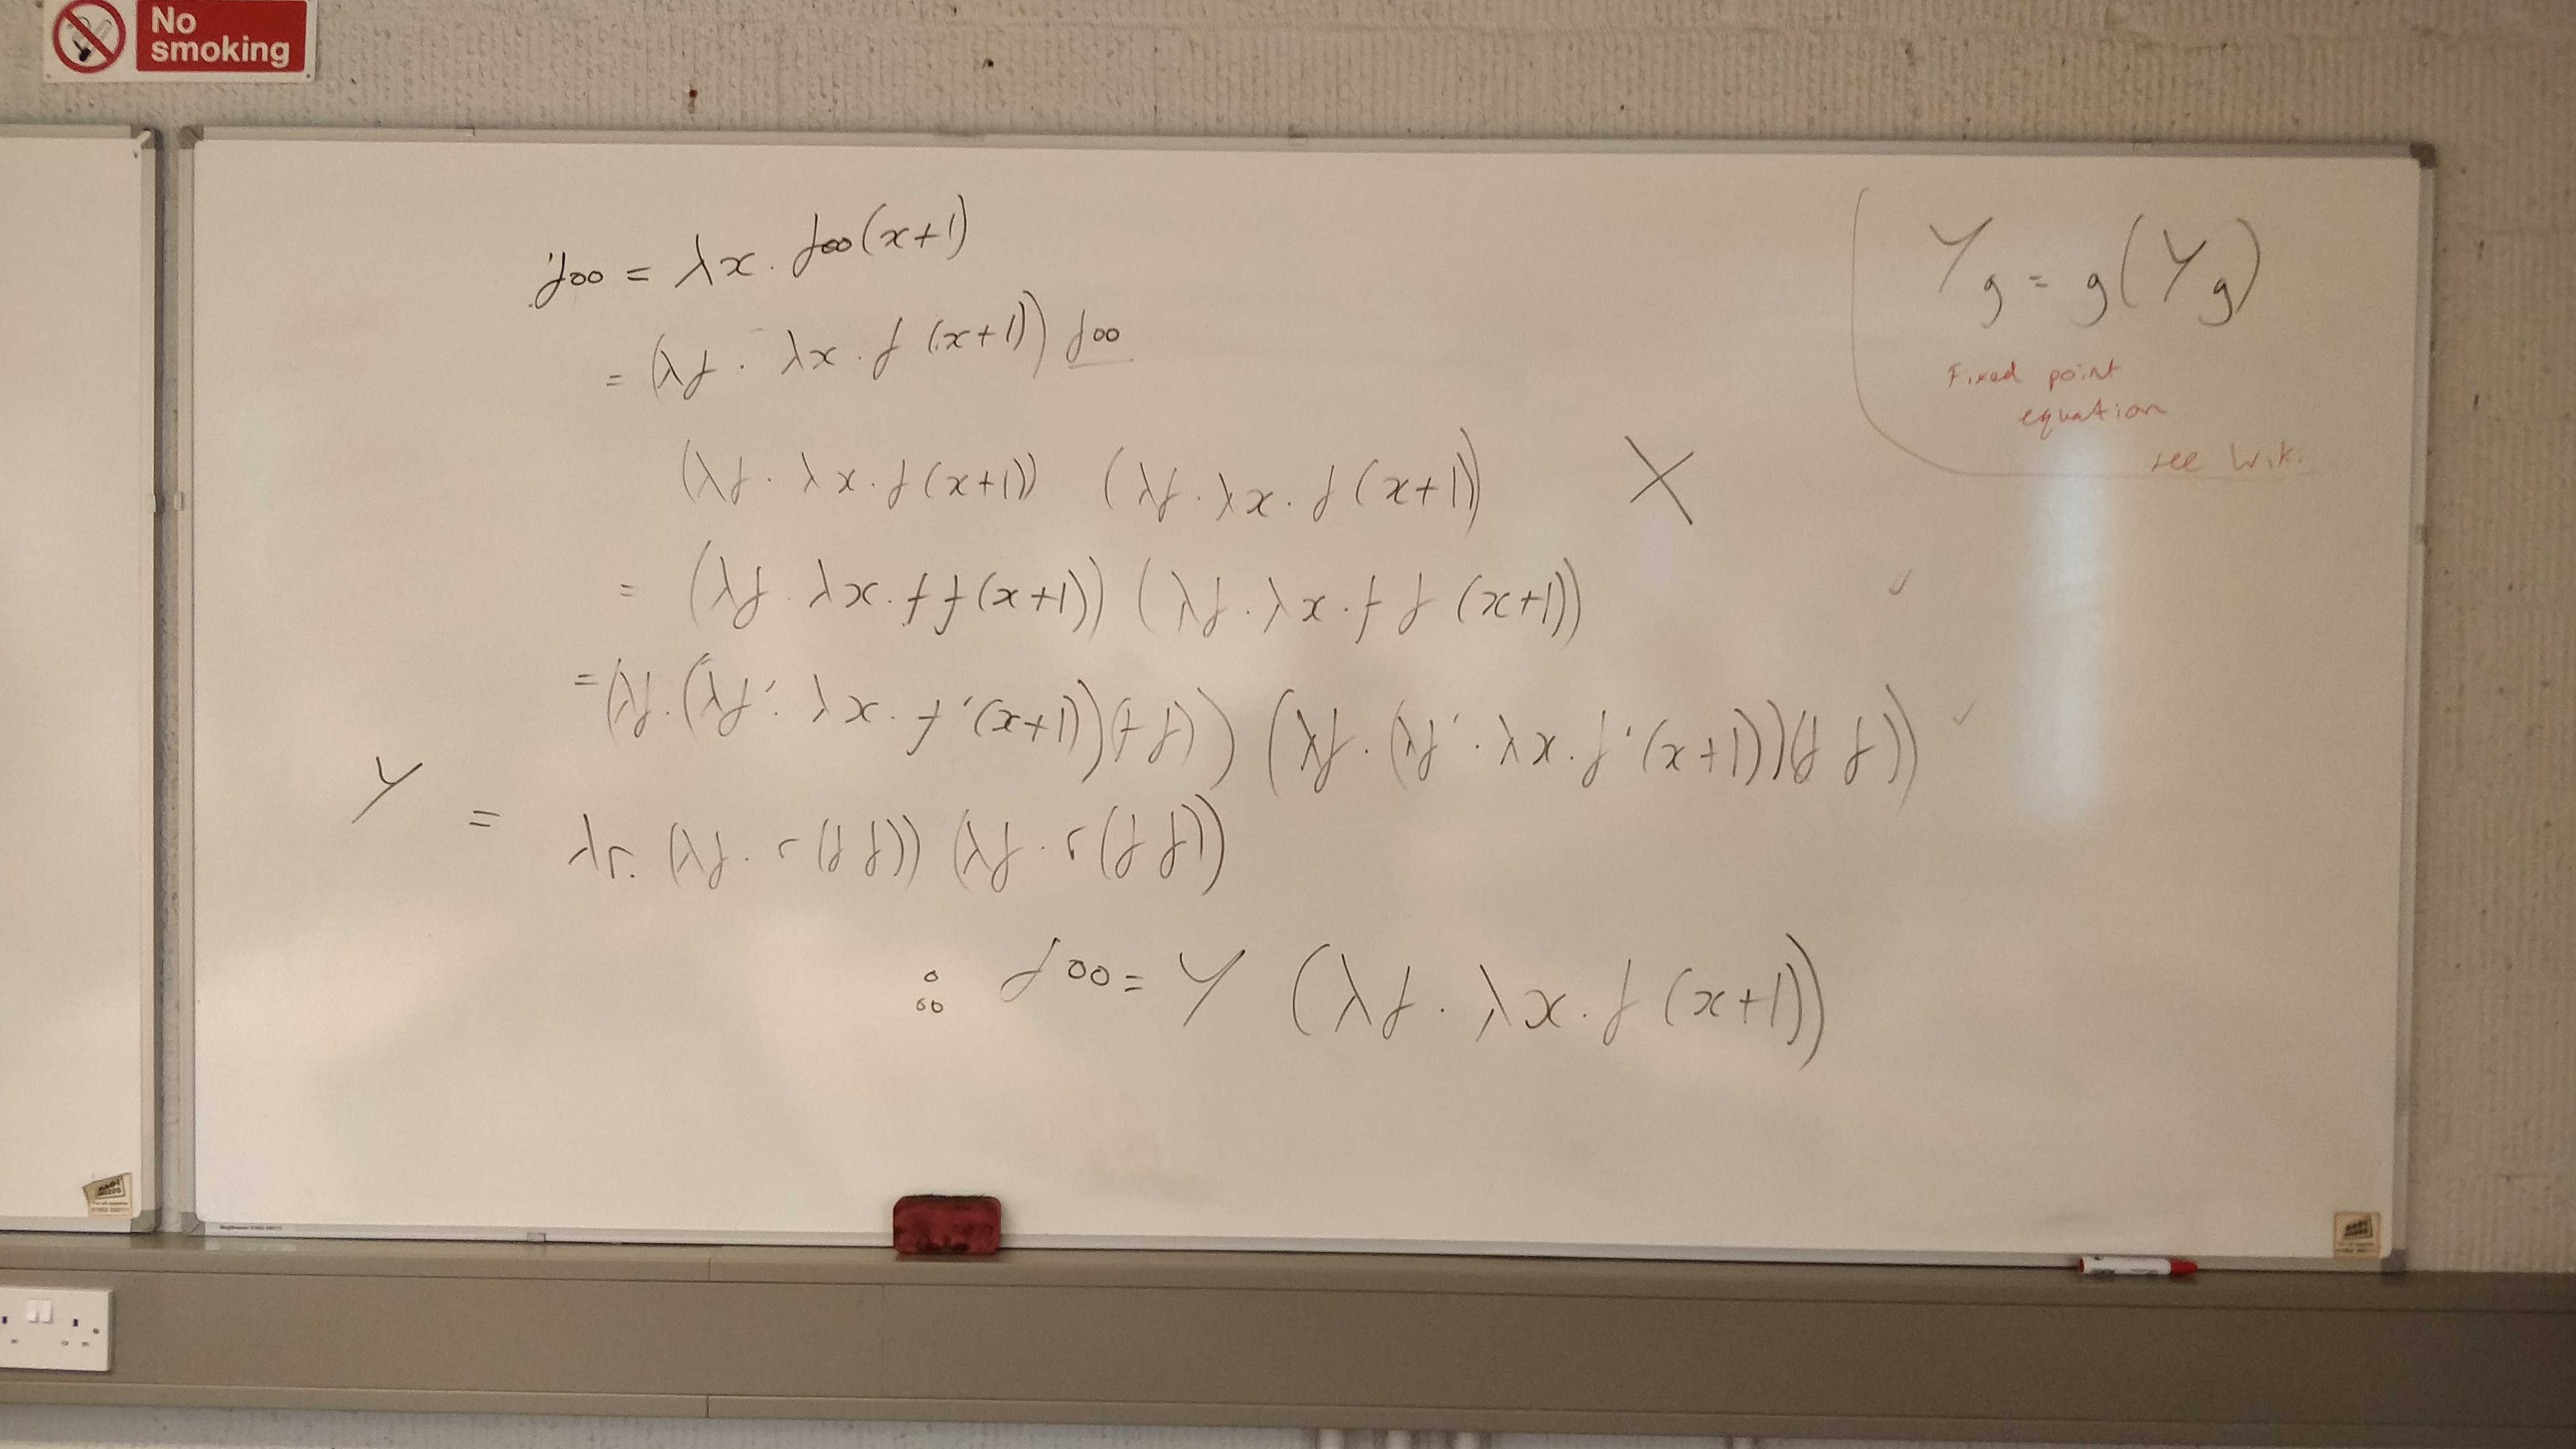 No
smoking
foo = λx. foo(x+1)
= (λf. λx. f (x+1)) foo
(λf. λx. f (x+1)) (λf. λx. f (x+1)) X
= (λf. λx. f f (x+1)) (λf. λx. f f (x+1)) ✓
= (λf. (λf'. λx. f'(x+1))(f f)) (λf. (λf'. λx. f'(x+1))(f f)) ✓
Y = λr. (λf. r (f f)) (λf. r (f f))
∴ foo = Y (λf. λx. f (x+1))
Yg = g(Yg)
Fixed point
equation
see Wiki